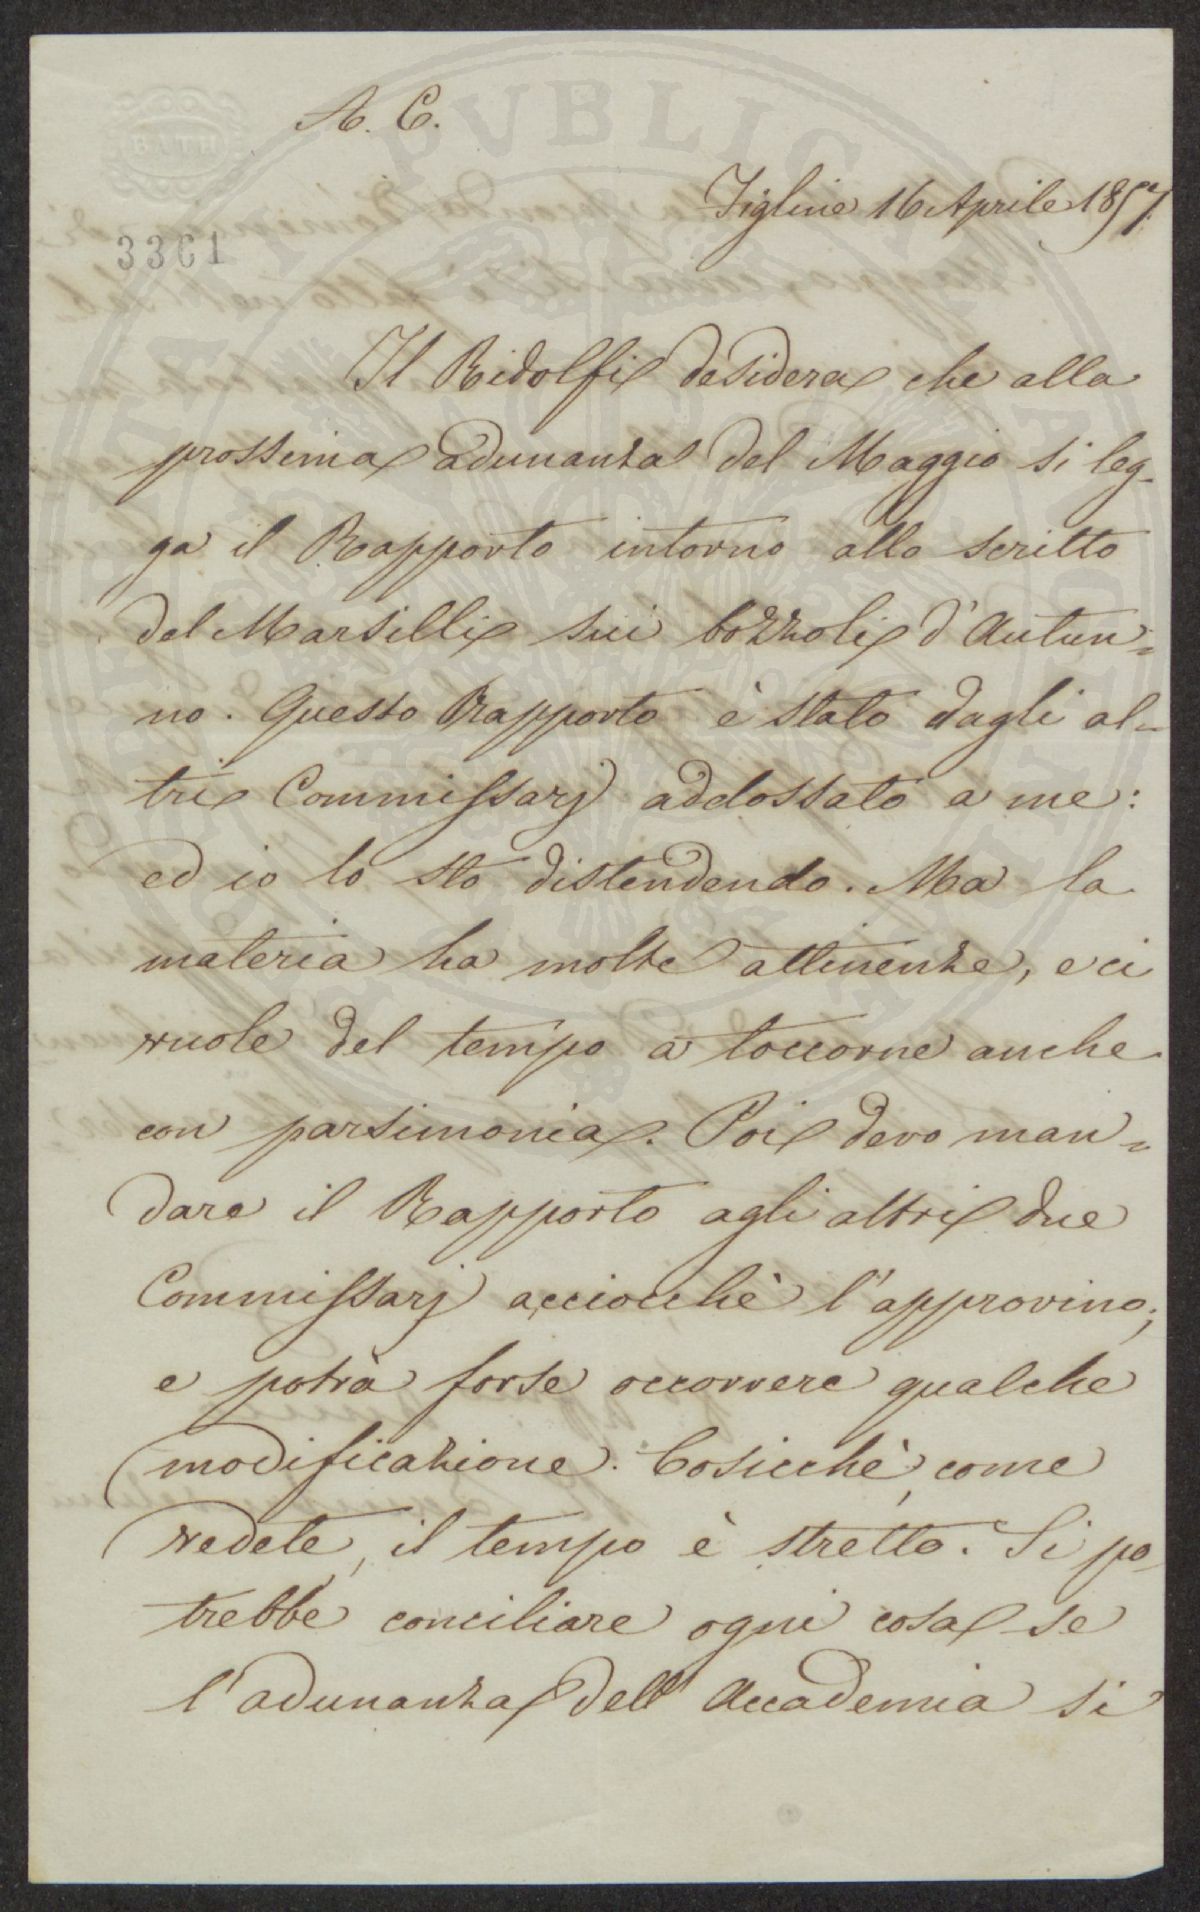 A. C.
BATH
Figline 16 Aprile 1857.
3361
Il Ridolfi desidera che alla
prossima adunanza del Maggio si leg-
ga il Rapporto intorno allo scritto
del Marsilli sui bozzoli d'Autun=
no. Questo Rapporto è stato dagli al=
tri Commissarj addossato a me:
ed io lo sto distendendo. Ma la
materia ha molte attinenze, e ci
vuole del tempo a toccarne anche
con parsimonia. Poi devo man=
dare il Rapporto agli altri due
Commissarj acciocchè l'approvino;
e potrà forse occorrere qualche
modificazione. Cosicchè, come
vedete, il tempo è stretto. Si po-
trebbe conciliare ogni cosa se
l'adunanza dell'Accademia si